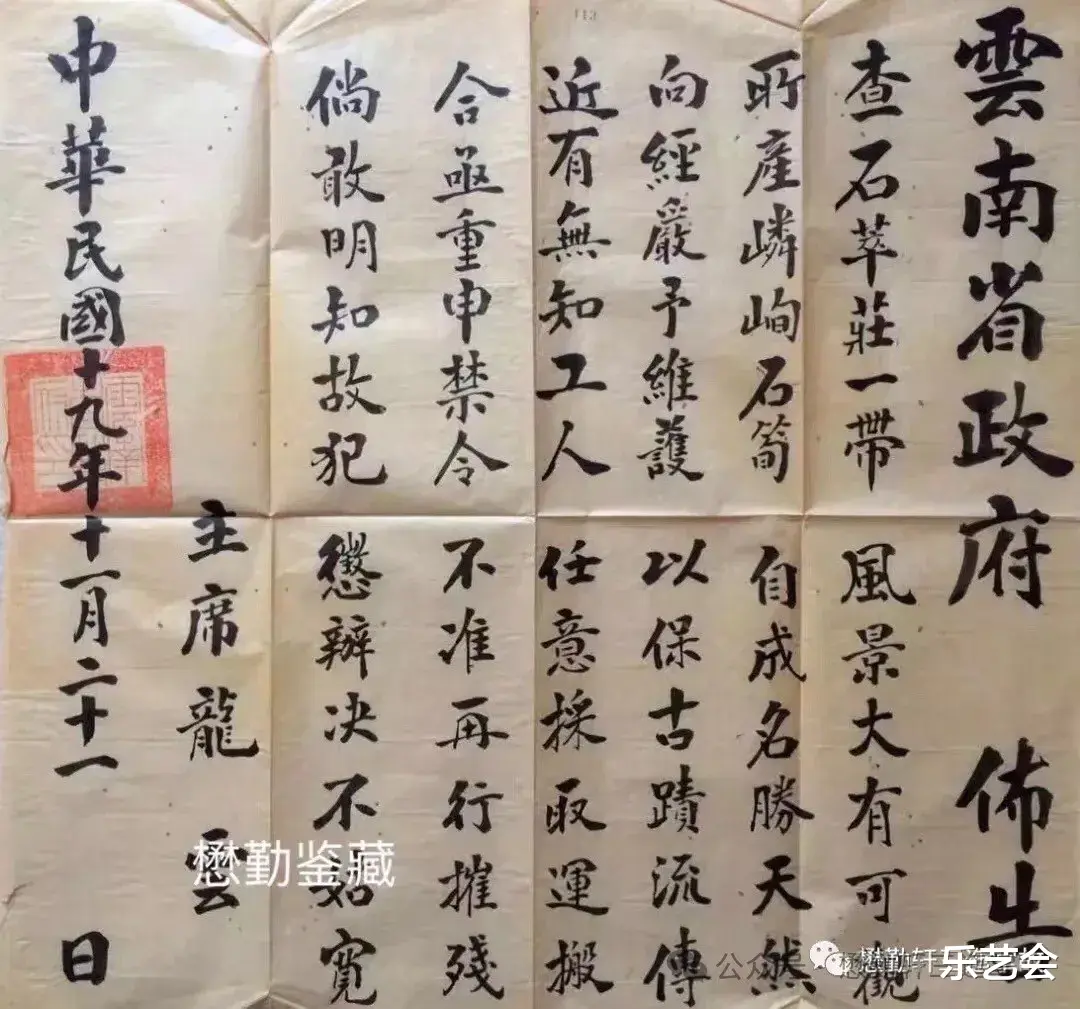 113
雲南省政府 佈告
查石萃莊一帶 風景大有可觀
所產嶙峋石筍 自成名勝天然
向經嚴予維護 以保古蹟流傳
近有無知工人 任意採取運搬
合亟重申禁令 不准再行摧殘
倘敢明知故犯 懲辦决不姑寬
主席龍雲
中華民國十九年十一月二十一日
懋勤鉴藏
公众号
懋勤轩
乐艺会